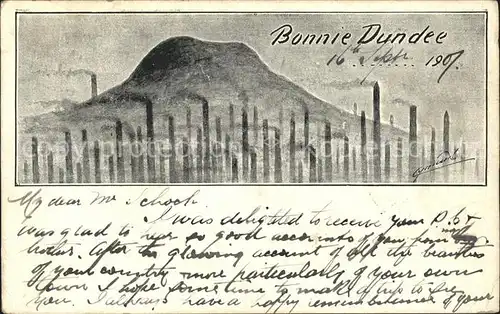 Bonnie Dundee
16th Sept 1907.
My dear Mr Schoch.
I was delighted to receive your P. b &
was glad to hear so good accounts of you, your
brother. After the glowing account of all the beauties
of your country more particularly of your own
town I hope some time to make a trip to see
you. I always have a happy remembrance of your